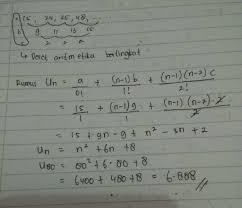 a 15, 24, 35, 48, ...
b 9 11 13 15
c 2 2 2
↳ Deret aritmetika bertingkat
Rumus Un = a/0! + (n-1)b/1! + (n-1)(n-2)c/2!
= 15/1 + (n-1)9/1 + (n-1)(n-2).2/2
= 15 + 9n - 9 + n² - 3n + 2
Un = n² + 6n + 8
U80 = 80² + 6.80 + 8
= 6400 + 480 + 8 = 6.888